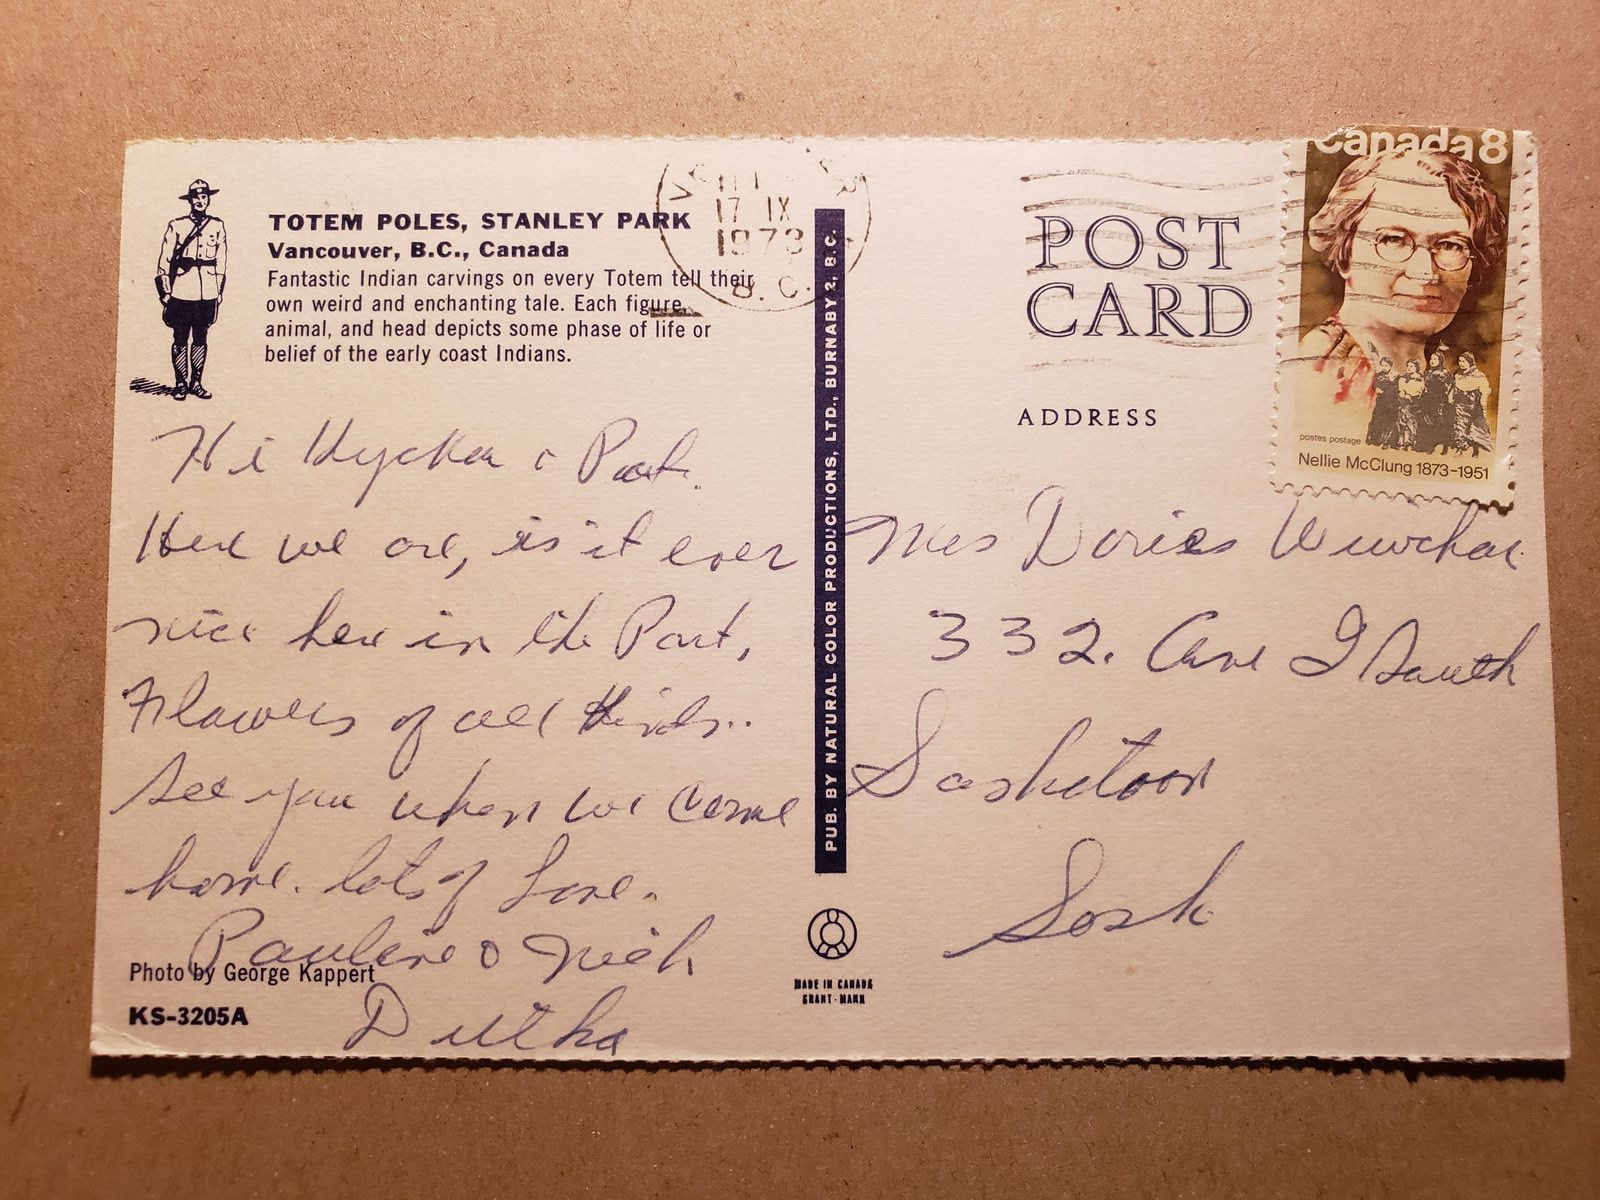 TOTEM POLES, STANLEY PARK
Vancouver, B.C., Canada
Fantastic Indian carvings on every Totem tell their
own weird and enchanting tale. Each figure,
animal, and head depicts some phase of life or
belief of the early coast Indians.
Hi &
Here we are, is it ever
nice here in the Park,
Flowers of all kinds..
See you when we come
home. lots of Love.
Pauline & Nick
Dutka
Photo by George Kappert
KS-3205A
17 IX
1973
B. C.
PUB. BY NATURAL COLOR PRODUCTIONS, LTD., BURNABY 2, B.C.
MADE IN CANADA
GRANT-MANN
POST
CARD
ADDRESS
Canada 8
postes postage
Nellie McClung 1873-1951
Mrs Dories
332. Ave I South
Saskatoon
Sask